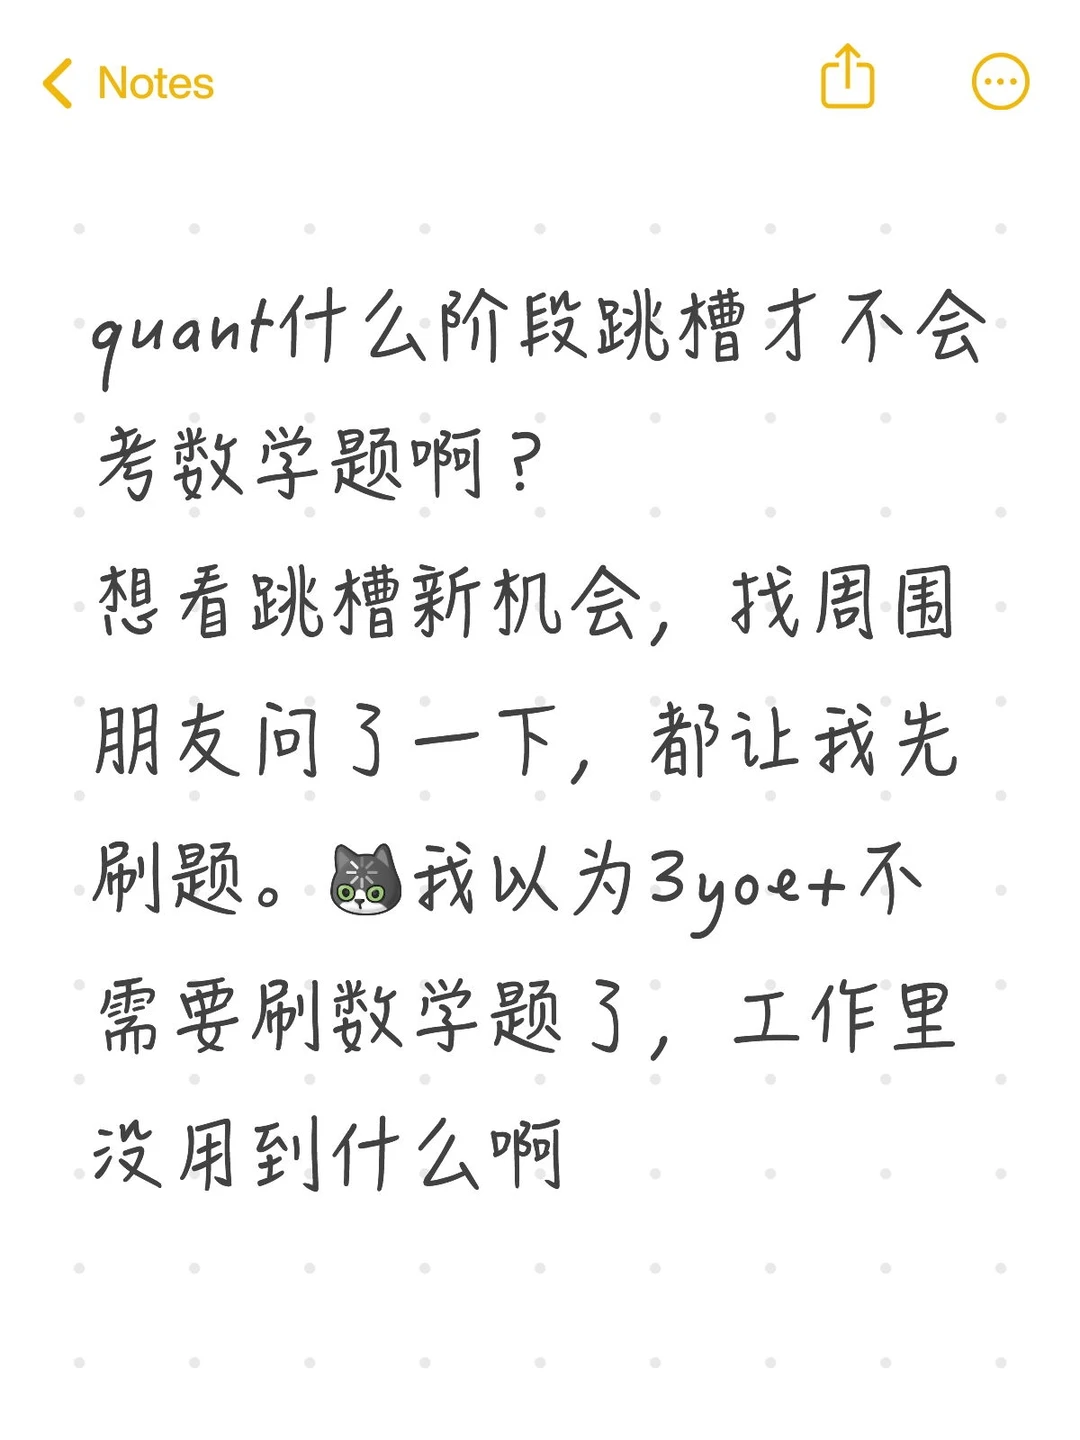 Notes
quant什么阶段跳槽才不会
考数学题啊？
想看跳槽新机会，找周围
朋友问了一下，都让我先
刷题。我以为3yoe+不
需要刷数学题了，工作里
没用到什么啊